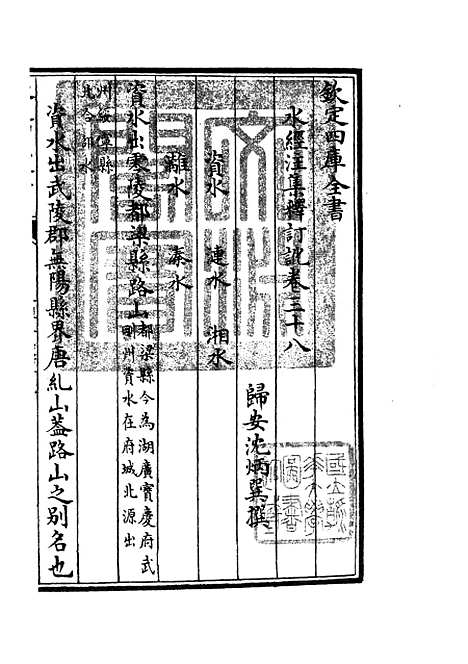 欽定四庫全書
水經注集釋訂訛卷三十八
歸安沈炳巽撰
資水 漣水 湘水
灕水 溱水
資水出零陵都梁縣路山
都梁縣今為湖廣寶慶府武
岡州資水在府城北源出
州綏寧縣
北合邵水
資水出武陵郡無陽縣界唐糺山蓋路山之別名也